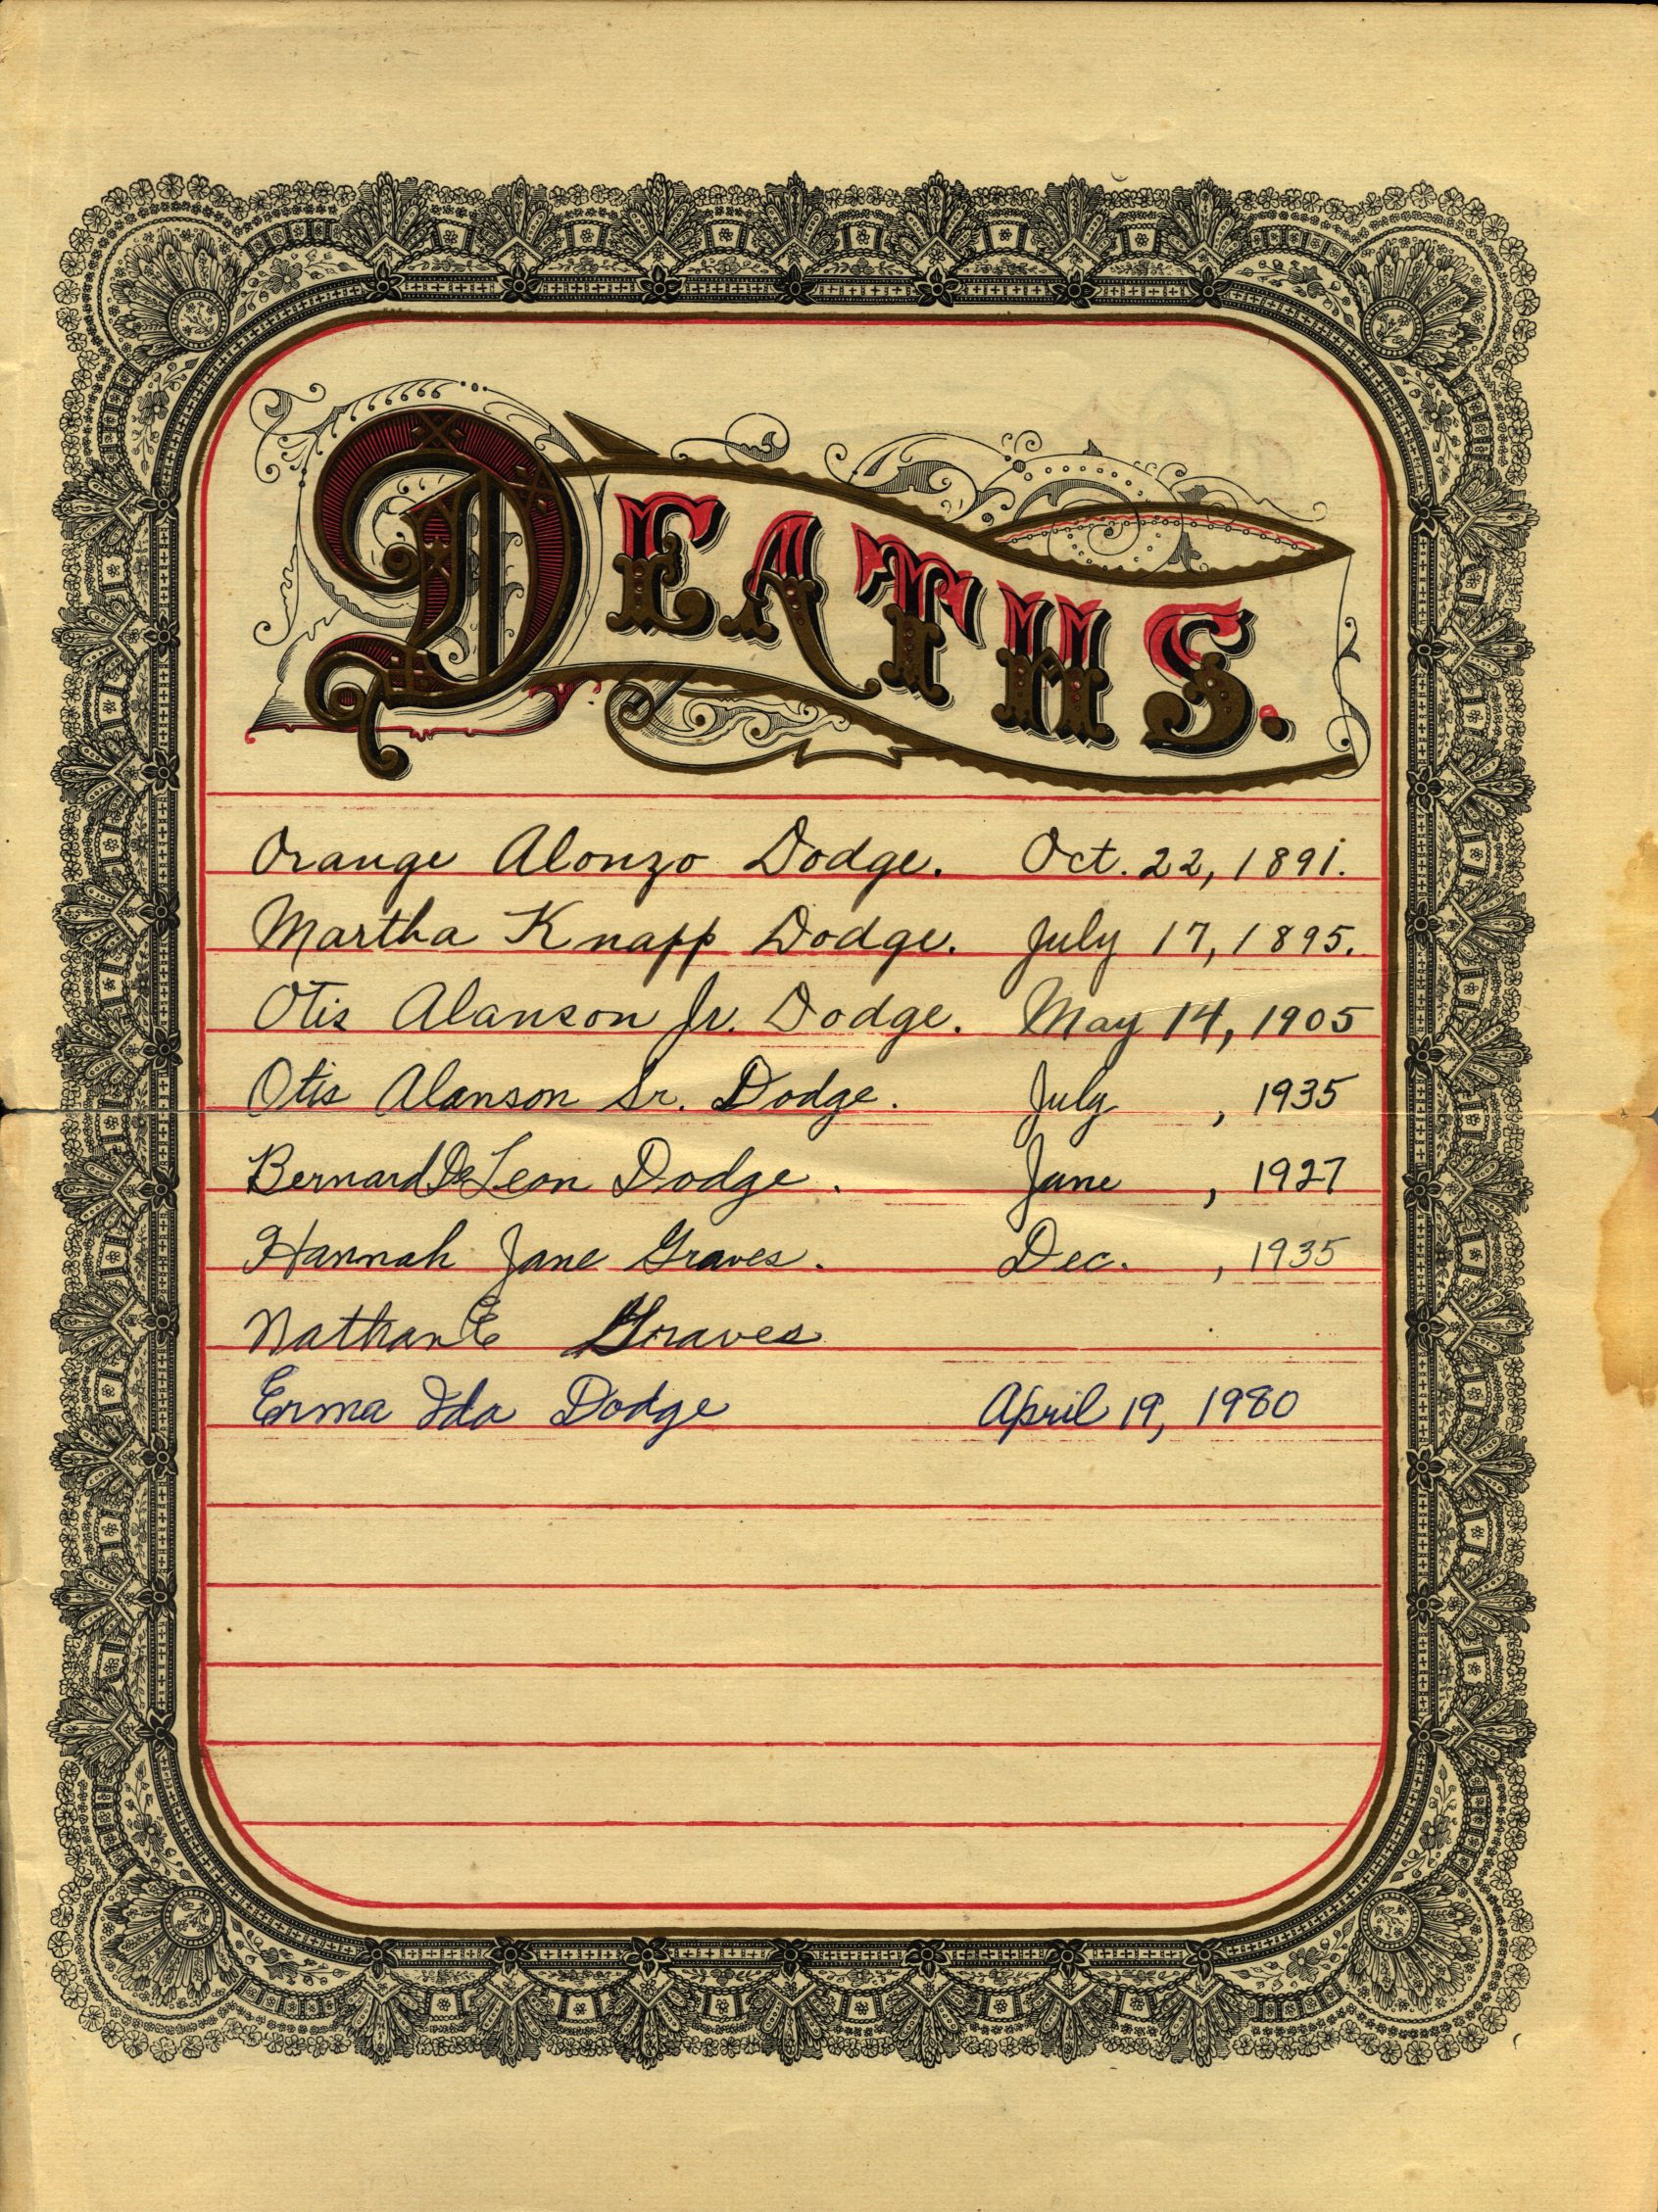 DEATHS.
Orange Alonzo Dodge. Oct. 22, 1891.
Martha Knapp Dodge. July 17, 1895.
Otis Alanson Jr. Dodge. May 14, 1905
Otis Alanson Sr. Dodge. July , 1935
Bernard De Leon Dodge. June , 1927
Hannah Jane Graves. Dec. , 1935
Nathan E Graves
Erma Ida Dodge April 19, 1980